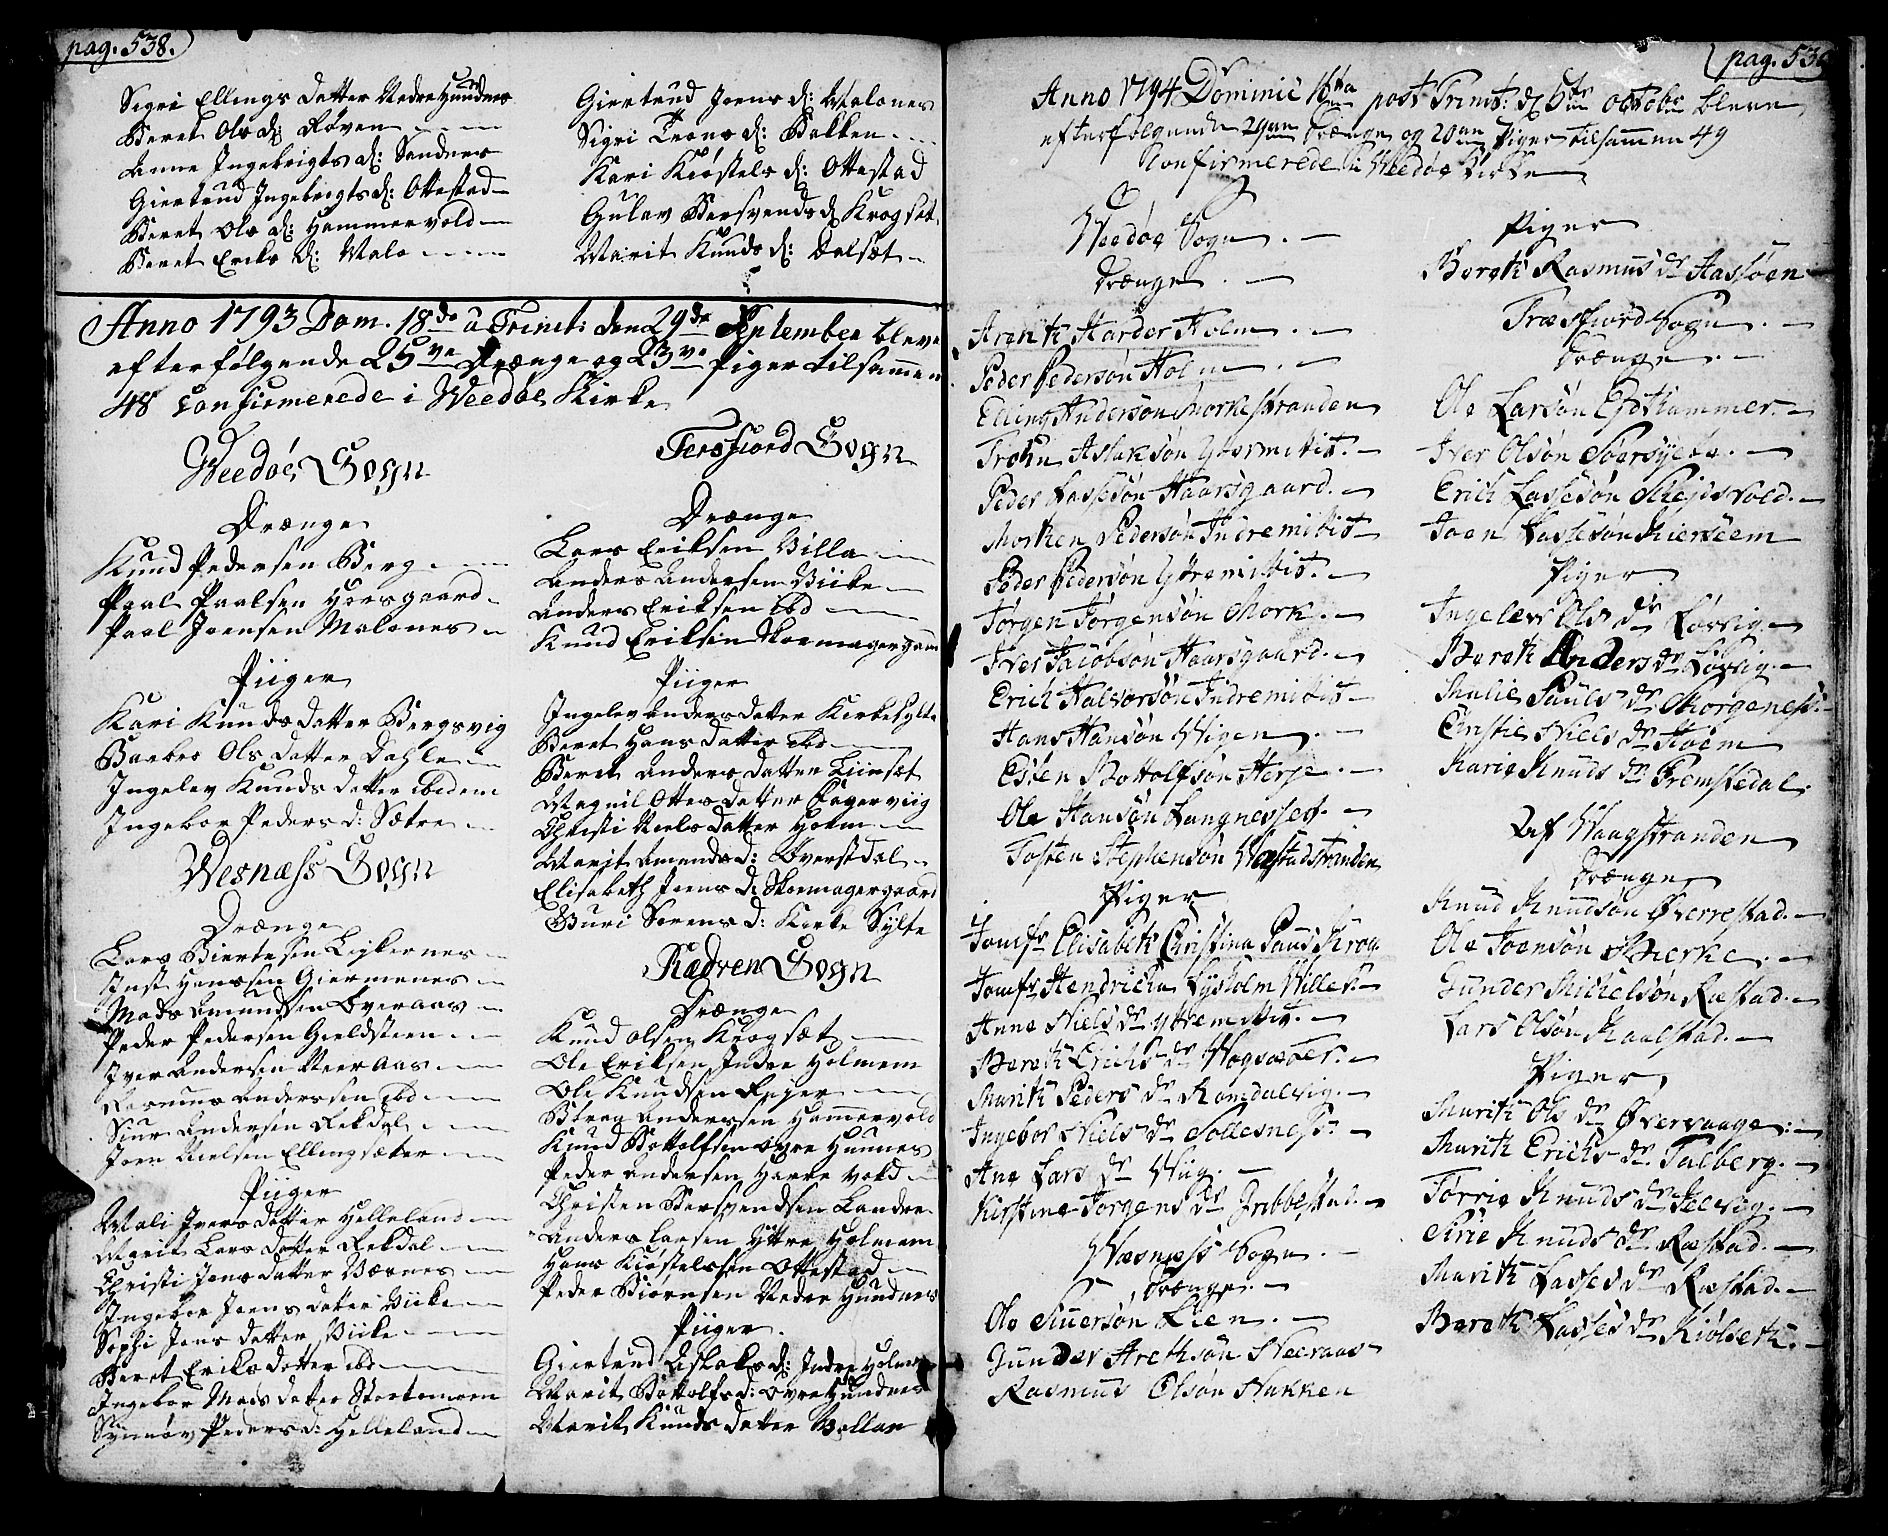 pag. 538.
Sigri Ellings datter Nedre Hundnes
Beret Ols d: Røven
Anne Ingebrigts d: Sandnes
Giertrud Ingebrigts d: Ottestad
Beret Ols d: Hammervold
Beret Eriks d: Male
Giertrud Joens d: Malones
Sigri Trons d: Bakken
Kari Kiøstels d: Ottestad
Gulev Bersvends d: Krogset
Marit Knuds d: Dalsæt
Anno 1793 Dom. 18de a Trinit: den 29de September bleve
efterfølgende 25ve Drænge og 23ve Piger tilsammen
48 confirmerede i Weedøe Kirke
Weedøe Sogn
Drænge
Knud Pedersen Berg
Paal Paalsen Horsgaard
Paal Joensen Malones
Piiger
Kari Knuds datter Bergsvig
Barbro Ols datter Dahle
Ingelev Knuds datter ibidem
Ingebor Peders d: Sætre
Wesnæss Sogn
Drænge
Lars Biertesen Ligkernes
Just Hanssen Giermenes
Mads Amundsen Overaas
Peder Pedersen Gieldsteen
Iver Andersen Neeraas
Rasmus Anderssen ibd
Siur Andersen Rekdal
Joen Nielsen Ellingsæter
Piiger
Mali Ivers datter Helleland
Marit Lars datter Rekdal
Christi Jens datter Værnes
Ingebor Joens datter Viike
Sophi Jens datter Viike
Beret Eriks datter ibd
Ingebor Mads datter Stortemoen
Synnøv Peders d: Helleland
Tersfiord Sogn
Drænge
Lars Eriksen Villa
Anders Andersen Viike
Anders Eriksen ibd
Knud Eriksen Skomagergaard
Piiger
Ingelev Anders datter Kirkesylte
Beret Hans datter ibd
Berit Anders datter Liinsæt
Magnil Ottes datter Fagerviig
Christi Niels datter Holm
Marit Amunds d: Øverstdal
Elisabeth Joens d: Skomagergaard
Guri Sørens d: Kirke Sylte
Rædven Sogn
Drænge
Knud Olsen Krogsæt
Ole Eriksen Indre Holmem
Ole Knudsen Rejer
Biørn Anderssen Hammervold
Knud Bottolfsen Øvre Hunnes
Peder Andersen Herre vold
Christen Bersvendsen Landre
Anders Larsen Yttre Holmem
Hans Kiøstelssen Ottestad
Peder Biørnsen Nedre Hundnes
Piiger.
Giertrud Aslaks d: Indre Holmem
Marit Bottolfs d: Øvre Hundnes
Marit Knuds datter Vollan
pag. 539
Anno 1794 Dominic 16ta post Trinit: d: 5te octobr bleve
efterfølgende 29ve Drænge og 20ve Piger tilsammen 49
Confirmerede i Weedøe Kirke
Weedøe Sogn.
Drænge.
Arent Harder Holm.
Peder Pedersøn Holm
Elling Andersøn Morkestranden
Trohn Aslaksøn Ytermitit.
Peder Lassesøn Haarsgaard.
Morten Pedersøn Indremitit
Peder Pedersøn Ytremitit.
Jørgen Jørgensøn Mork.
Iver Jacobsøn Haarsgaard.
Erich Halvorsøn Indremitit
Hans Hansøn Wigen.
Esten Bottolfsøn Herje.
Ole Hansøn Langnesset.
Tosten Stephensøn Wæstadstranden
Piger
Jomfr Elisabeth Christina Paus Krog
Jomfr Hendricha Lysholm Willeh
Anne Niels dr Ytremitit.
Bereth Erichs dr Wogsæter.
Marith Peders dr Romdalsvig.
Ingebor Niels dr Sollesness.
Ane Lars dr Wiig.
Kirstine Jørgens dr Gribbestad.
Wæsness Sogn.
Drænge.
Ole Siuersøn Lien.
Gunder Arethsøn Neeraas
Rasmus Olsøn Hakken
Piger
Bereth Rasmus dr Haasøen
Træsfiord Sogn.
Drænge.
Ole Larsøn Eidhammer.
Iver Olsøn Søersylte.
Erich Lassesøn Skejdsvold.
Joen Lassesøn Kierseem
Piger
Ingelev Ols dr Løvvig.
Bereth Anders dr Løvvig.
Malie Pauls dr Skorgeness.
Cirstie Niels dr Hoem
Karie Knuds dr Fremstedal.
Af Waagstranden
Drænge
Knud Knudsøn Øverrestad.
Ole Joensøn Bierke.
Gunder Michelsøn Ræstad.
Lars Olsøn Kaalstad.
Piger
Marith Ols dr Øverwaage.
Marith Erichs dr Talberg.
Tørrie Knuds dr Seevig.
Sirie Knuds dr Ræstad.
Marith Lasses dr Ræstad.
Bereth Lasses dr Kiølseth.